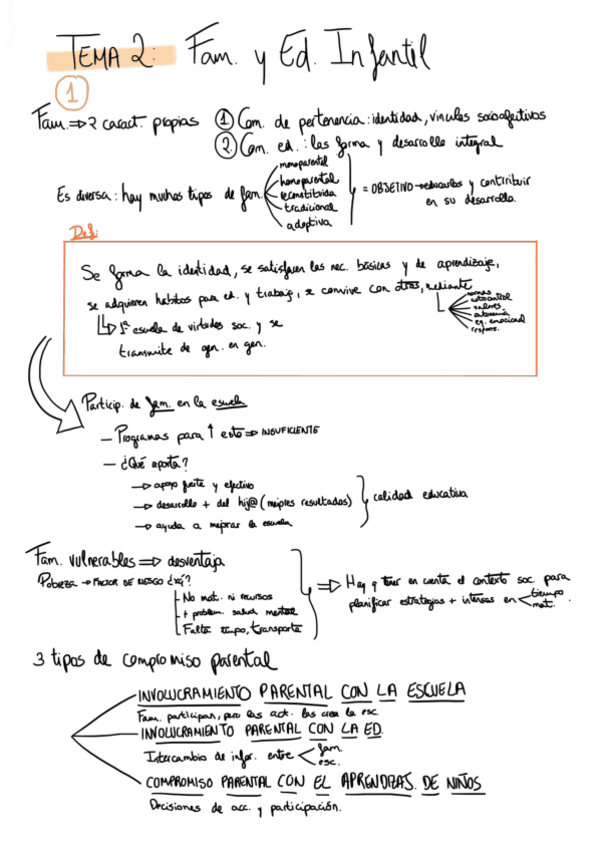 TEMA 2: Fam. y Ed. Infantil
1
Fam. ⇒ 2 caract. propias ① Com. de pertenencia: identidad, vínculos socioafectivos
② Com. ed.: las forma y desarrollo integral
Es diversa: hay muchos tipos de fam.
monoparental
homoparental
reconstituida
tradicional
adoptiva
= OBJETIVO → educarlos y contribuir
en su desarrollo.
Def:
Se forma la identidad, se satisfacen las nec. básicas y de aprendizaje,
se adquieren hábitos para ed. y trabajo, se convive con otras, mediante
normas
autocontrol
valores
autonomía
eq. emocional
respons.
↳ 1ª escuela de virtudes soc. y se
transmite de gen. en gen.
Particip. de fam. en la escuela
- Programas para ↑ esto ⇒ INSUFICIENTE
- ¿Qué aporta?
→ apoyo fuerte y efectivo
→ desarrollo + del hij@ (mejores resultados)
→ ayuda a mejorar la escuela
calidad educativa
Fam. vulnerables ⇒ desventaja
Pobreza → FACTOR DE RIESGO ¿xq?
No mat. ni recursos
+ problem. salud mental
Falta tiempo, transporte
⇒ Hay q tener en cuenta el contexto soc. para
planificar estrategias + intensas en
tiempo
mat.
3 tipos de compromiso parental
INVOLUCRAMIENTO PARENTAL CON LA ESCUELA
Fam. participan, pero las act. las crea la esc.
INVOLUCRAMIENTO PARENTAL CON LA ED.
Intercambio de infor. entre
fam.
esc.
COMPROMISO PARENTAL CON EL APRENDIZAJ. DE NIÑOS
Decisiones de acc. y participación.